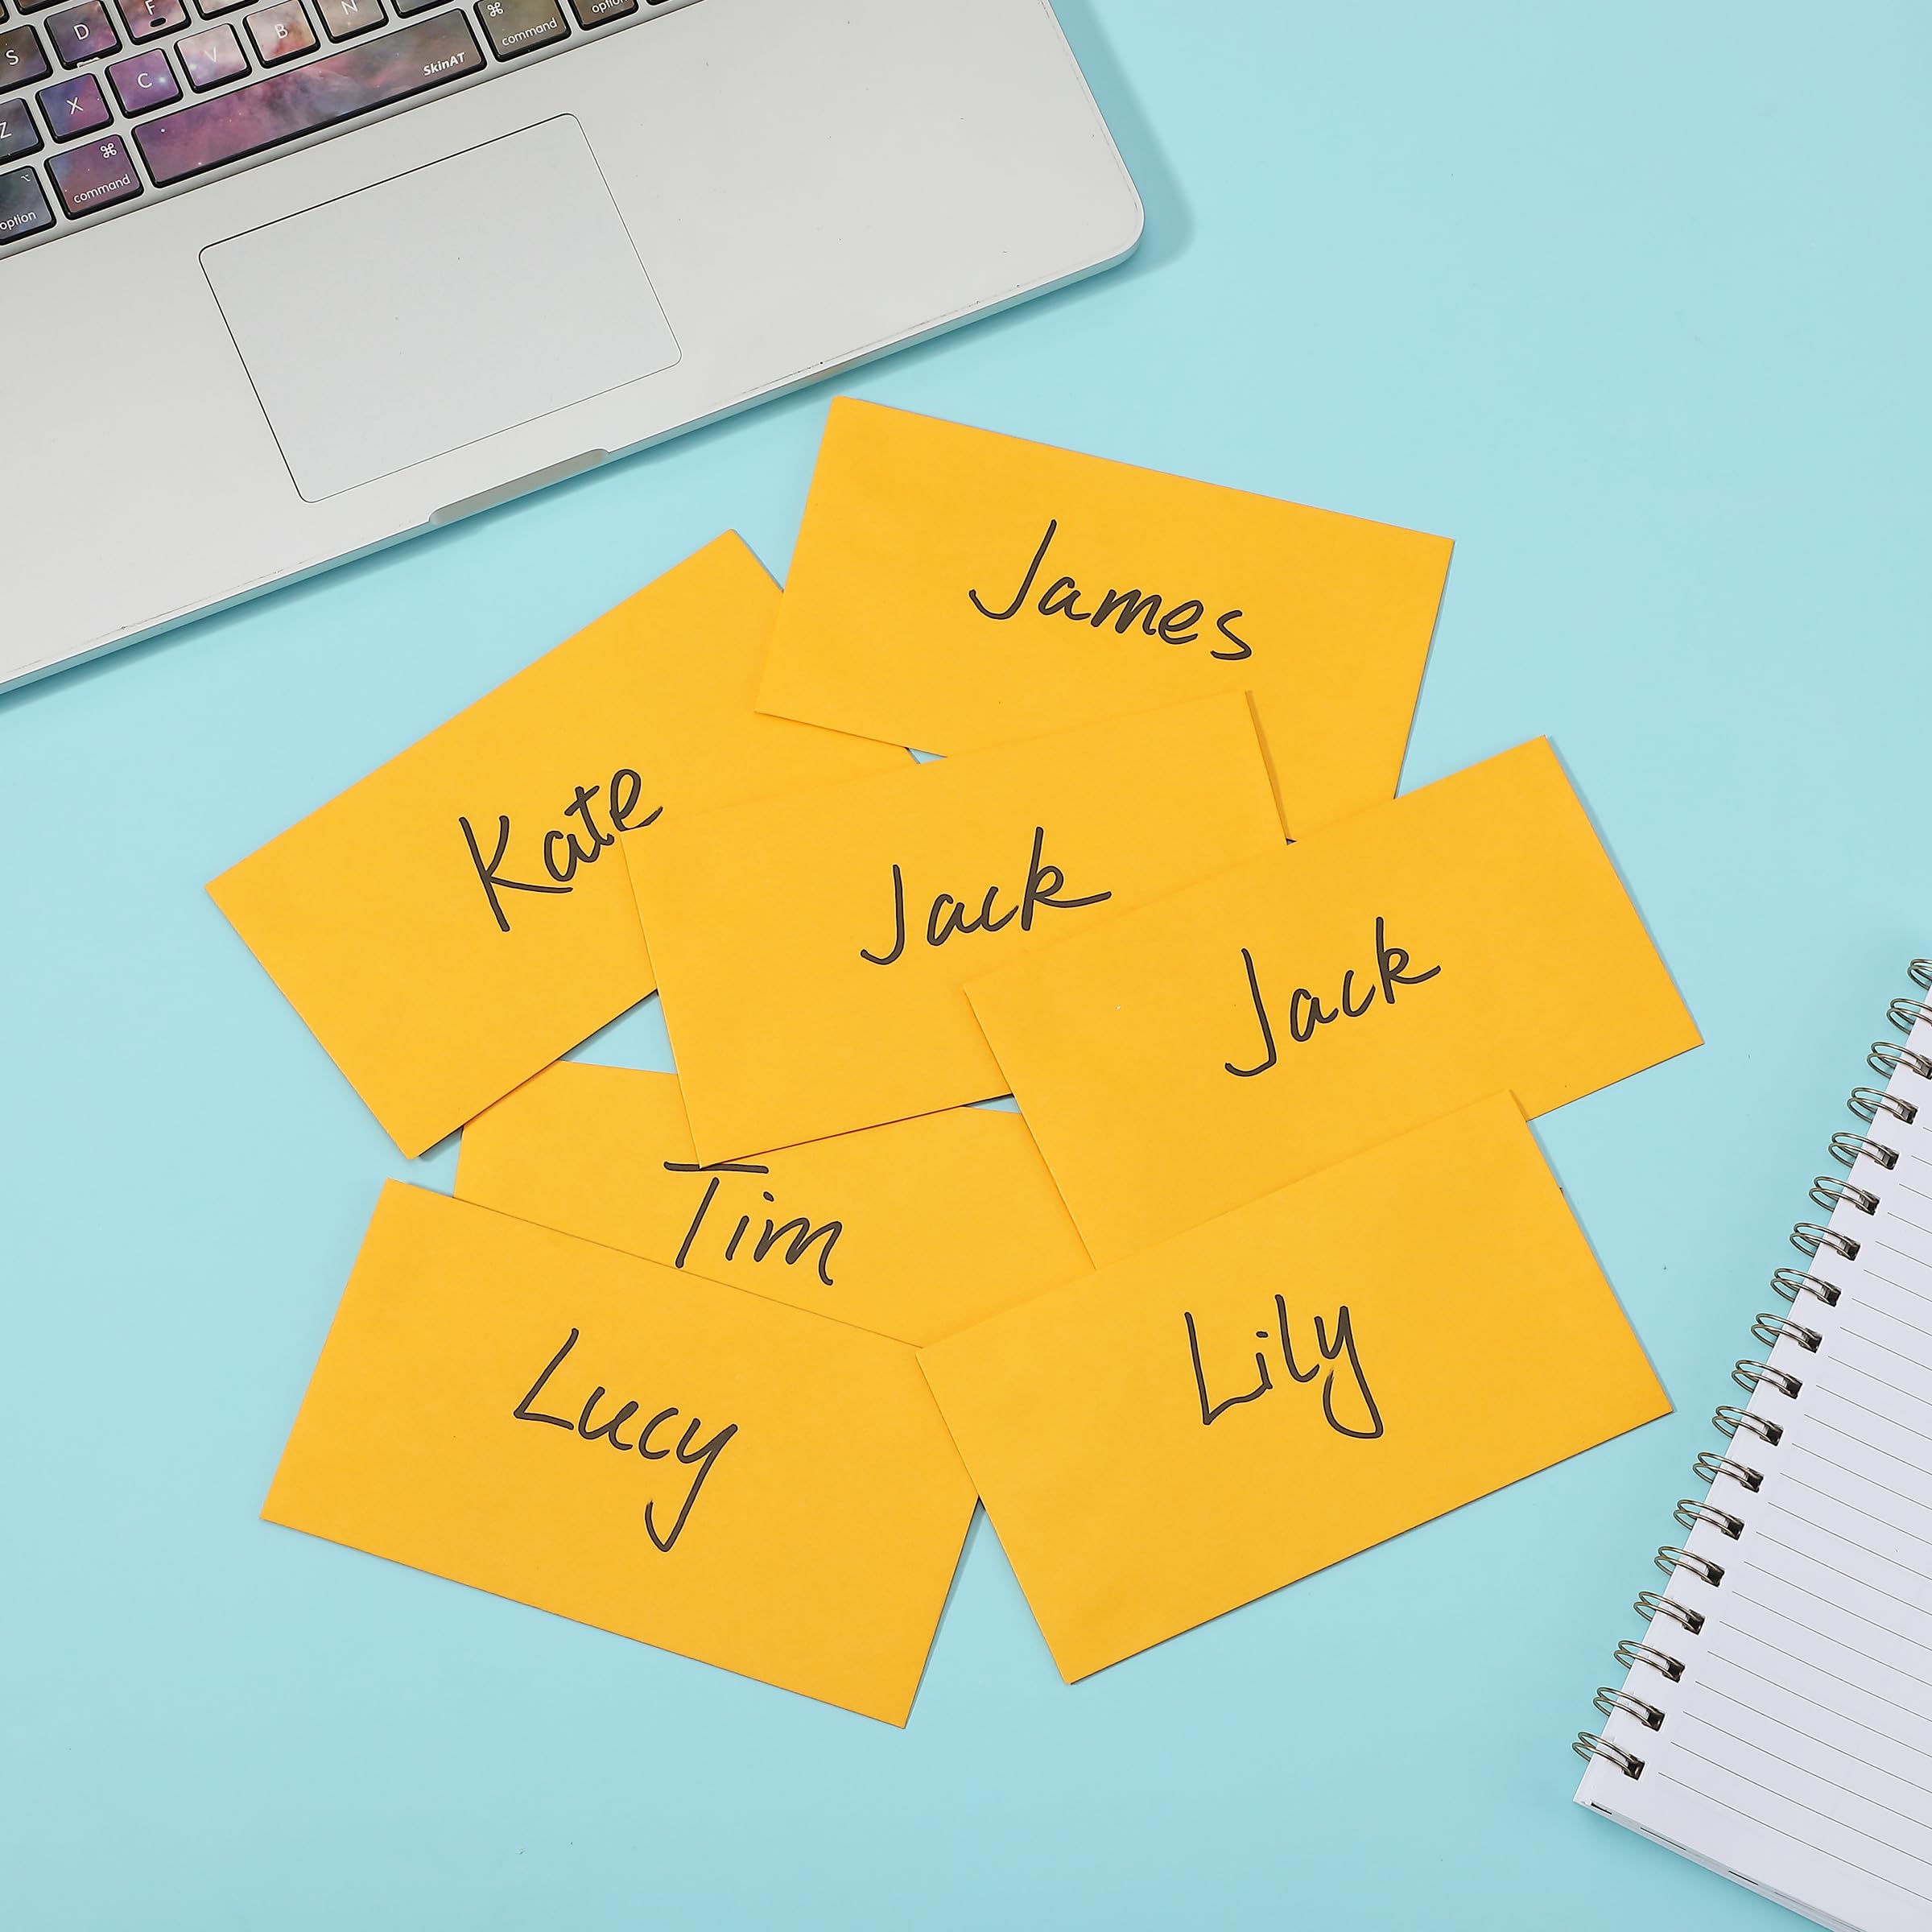 S D F
Z X C V B N
SkinAT
⌘ command
option
⌥ option
⌘ command
James
Kate
Jack
Jack
Tim
Lucy
Lily